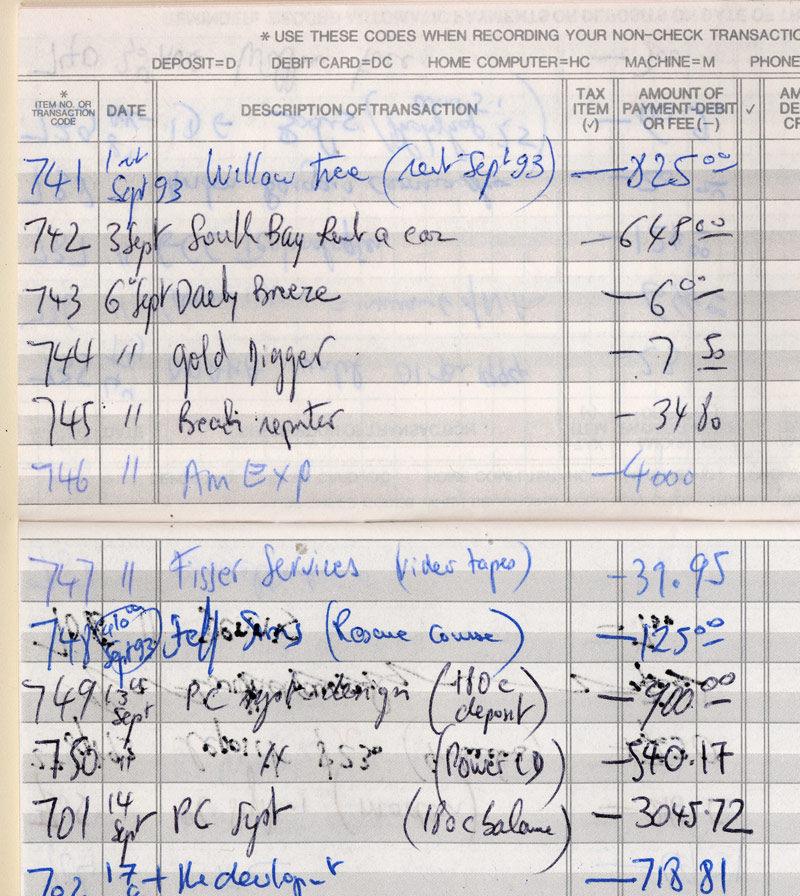 * USE THESE CODES WHEN RECORDING YOUR NON-CHECK TRANSACTIO
DEPOSIT=D DEBIT CARD=DC HOME COMPUTER=HC MACHINE=M PHONE
* ITEM NO. OR TRANSACTION CODE DATE DESCRIPTION OF TRANSACTION TAX ITEM (✓) AMOUNT OF PAYMENT-DEBIT OR FEE (—) ✓ AM DE CR
741 1 Sept 93 Willow tree (rent Sept 93) —825 00
742 3 Sept South Bay Rent a car —648 00
743 6 Sept Daely Breeze —6 00
744 " Gold Digger —7 50
745 " Beach reporter —34 80
746 " Am Exp —4000
747 " Fisser Services (video tapes) —39.95
748 Sept 93 (Rescue Course) —125 00
749 13 Sept PC (180c deposit) —900 00
750 " (Power CD) —540.17
701 14 Sept PC Syst (180c balance) —3045.72
702 17 —718 81